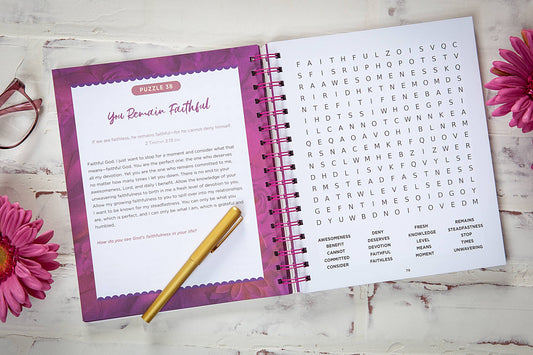 PUZZLE 38
You Remain Faithful
If we are faithless, he remains faithful—for he cannot deny himself.
2 Timothy 2:13
Faithful God, I just want to stop for a moment and consider what that
means—faithful God. You are the perfect one; the one who deserves
all my devotion. Yet you are the one who remains committed to me,
no matter how many times I let you down. There is no end to your
awesomeness, Lord, and daily I benefit. Allow the knowledge of your
unwavering faithfulness to birth in me a fresh level of devotion to you.
Allow my growing faithfulness to you to spill over into my relationships.
I want to be known for my steadfastness. You can only be what you
are, which is perfect, and I can only be what I am, which is grateful and
humbled.
How do you see God's faithfulness in your life?
F A I T H F U L Z O I S V Q C
S F I S R U P H Q P O T S T V
R A A W E S O M E N E S S K Q
R I R I D H K T N E M O M D S
R M S T E A D F A S T N E S S
D A T R W L E V E L S E D N I
G E F N T I M E S O I D G O Y
D Y U W B D N O I T O V E D M
AWESOMENESS DENY FRESH REMAINS
BENEFIT DESERVES KNOWLEDGE STEADFASTNESS
CANNOT DEVOTION LEVEL STOP
COMMITTED FAITHFUL MEANS TIMES
CONSIDER FAITHLESS MOMENT UNWAVERING
79